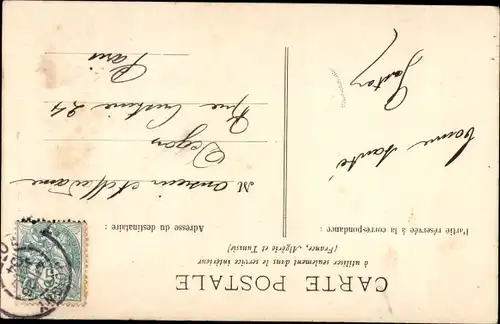 CARTE POSTALE
à utiliser seulement dans le service intérieur
(France, Algérie et Tunisie)
Partie réservée à la correspondance :
bonne santé
Gaston
Adresse du destinataire :
Monsieur et Madame
Degon
Rue Custine 24
Paris